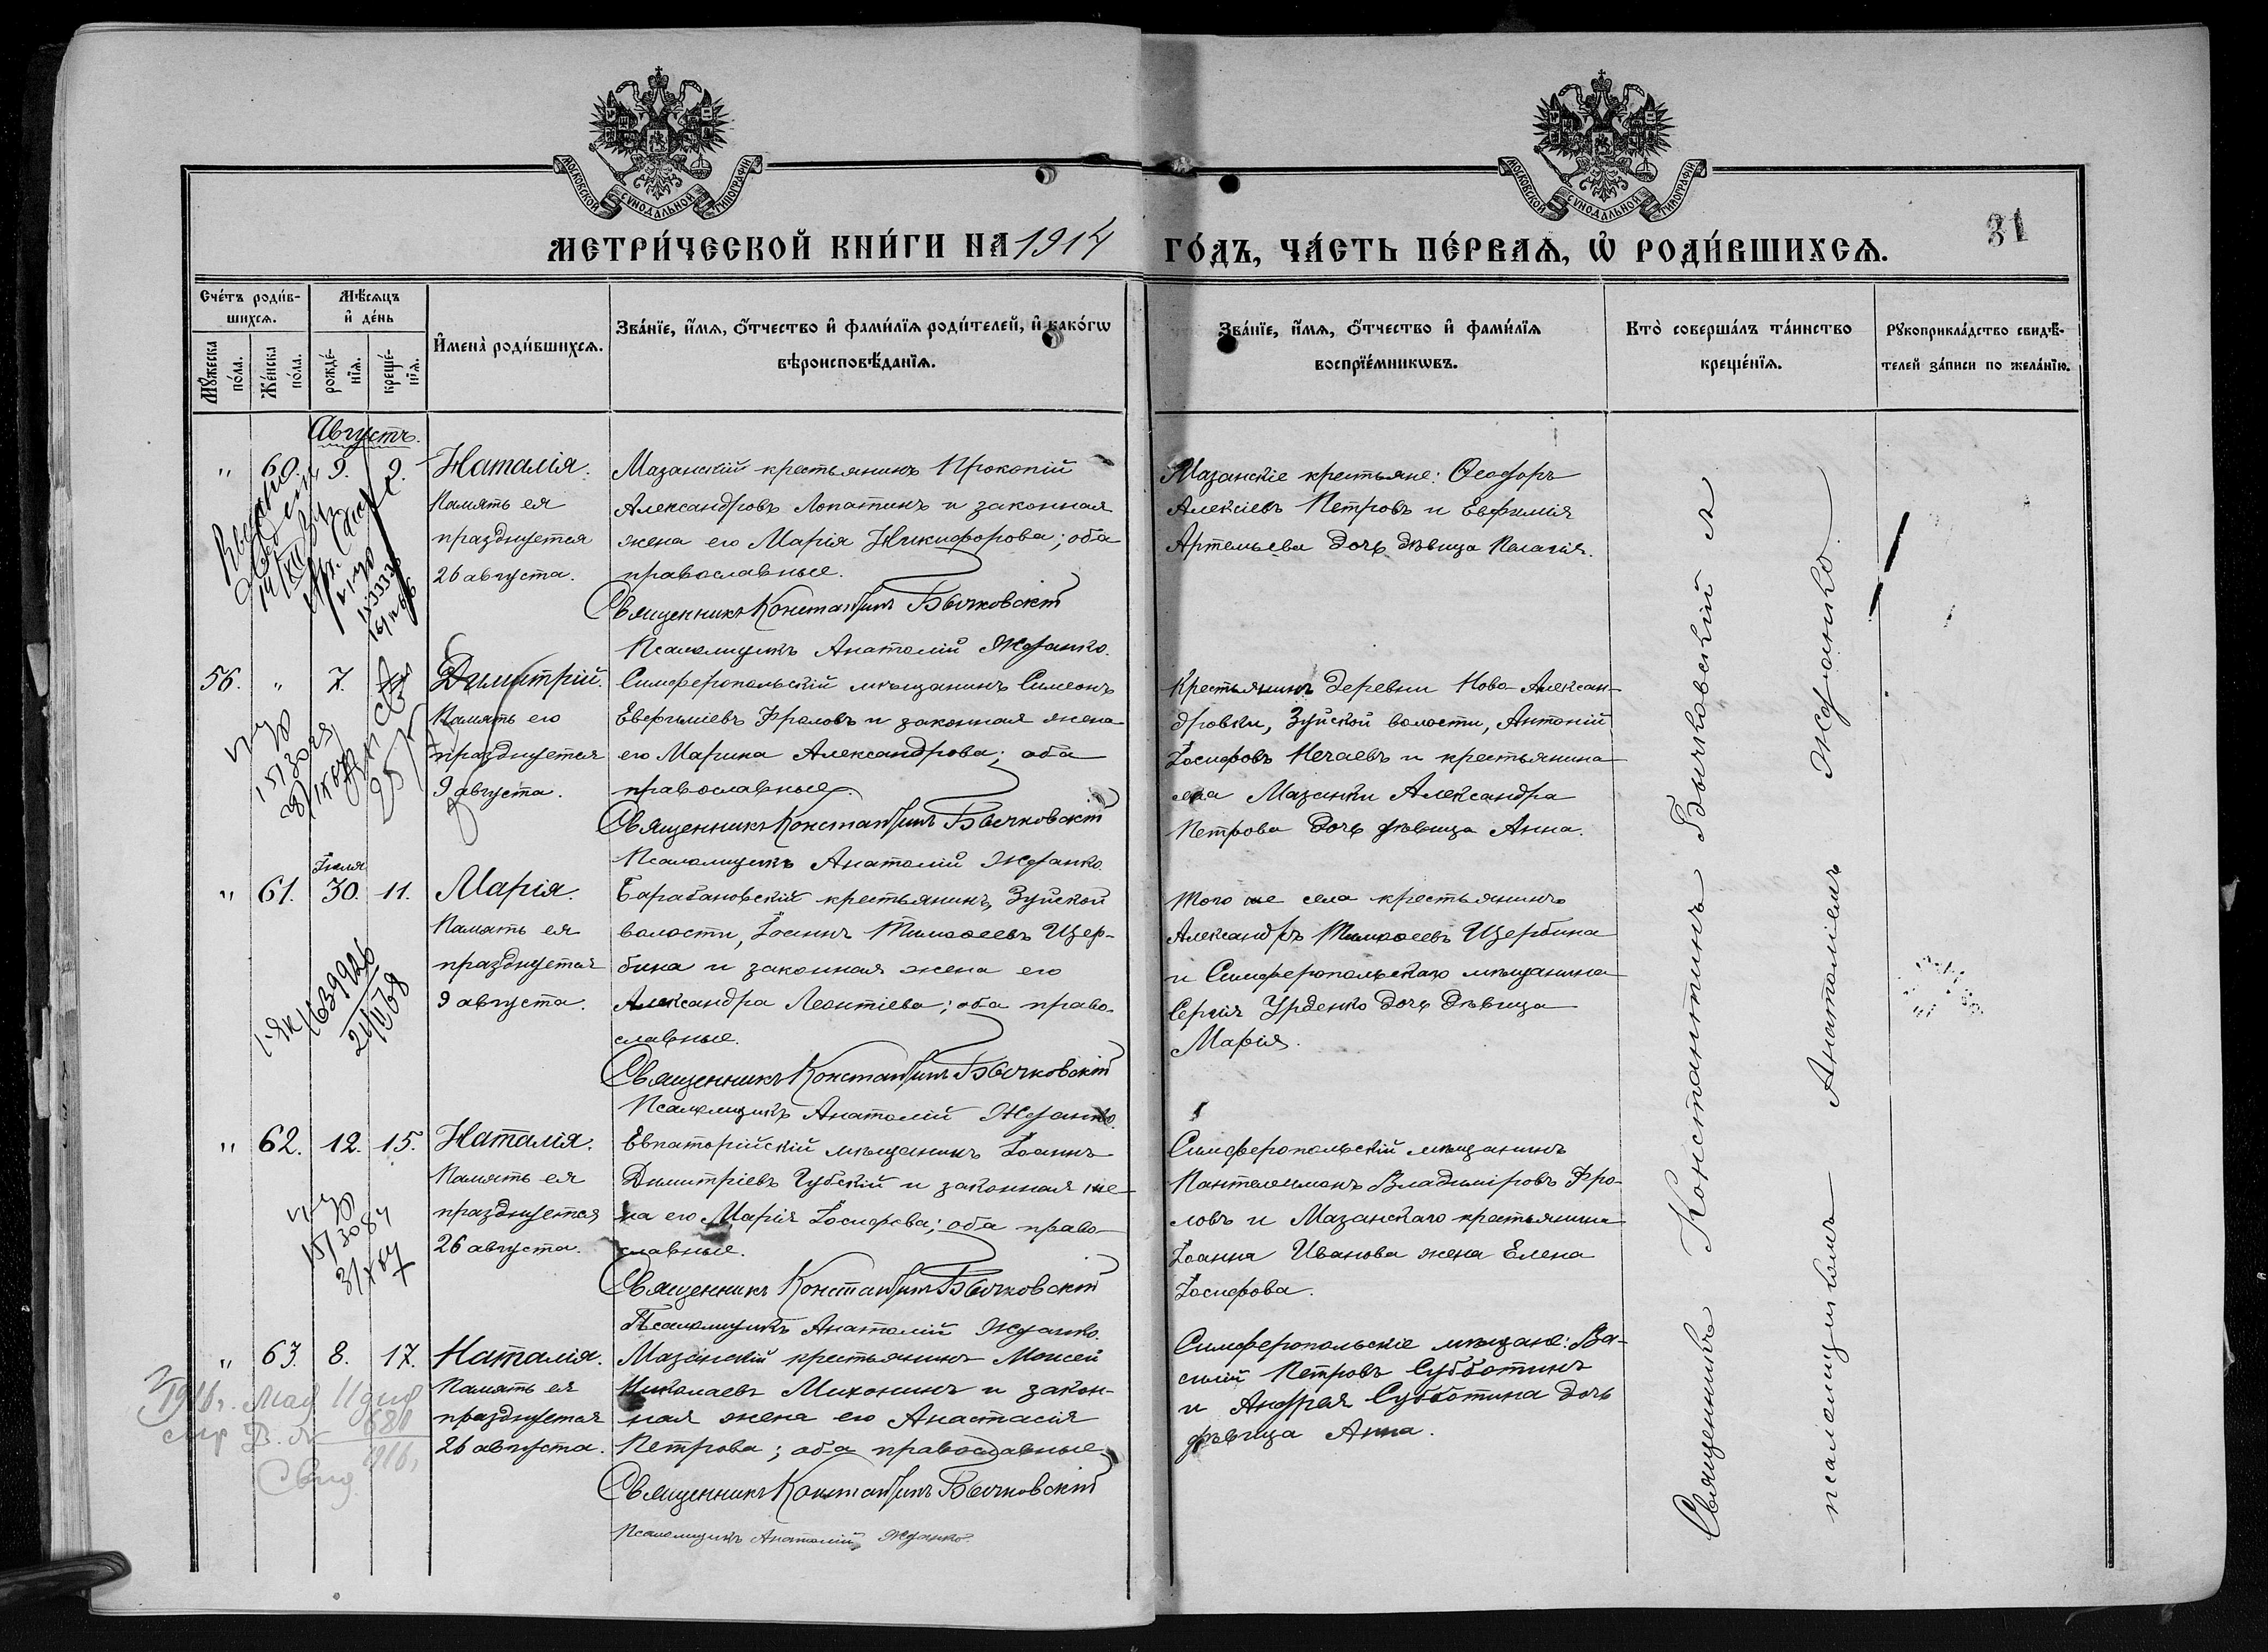 МОСКОВСКОЙ СѴНОДАЛЬНОЙ ТИПОГРАФІИ
МОСКОВСКОЙ СѴНОДАЛЬНОЙ ТИПОГРАФІИ
31
МЕТРИ́ЧЕСКОЙ КНИ́ГИ НА 1914 ГО́ДЪ, ЧА́СТЬ ПЕ́РВАѦ, Ѡ҆ РОДИ́ВШИХСѦ.
Сче́тъ роди́в-
шихсѧ.
Мѣ́сѧцъ
и҆ де́нь
Мꙋ́жеска
по́ла.
Же́нска
по́ла.
рожде́-
нїѧ.
креще́-
нїѧ.
И҆мена̀ роди́вшихсѧ.
Зва́нїе, и҆́мѧ, ѻ҆́тчество и҆ фами́лїѧ роди́телей, и҆ како́гѡ
вѣроисповѣ́данїѧ.
Зва́нїе, и҆́мѧ, ѻ҆́тчество и҆ фами́лїѧ
воспрїе́мникѡвъ.
Кто̀ соверша́лъ та́инство
креще́нїѧ.
Рꙋкоприкла́дство свидѣ́-
телей за́писи по жела́нїю.
Августъ.
" 60. 9. 9. Наталія.
Память ея
празднуется
26 августа.
Мазанскій крестьянинъ Прокопій
Александровъ Лопатинъ и законная
жена его Марія Никифорова; оба
православные.
Священникъ Константинъ Бычковскій
Псаломщикъ Анатолій Жданко.
Мазанскіе крестьяне: Ѳеодоръ
Алексіевъ Петровъ и Евфимія
Артемьева дочь дѣвица Пелагія.
56. " 7. Димитрій.
Память его
празднуется
9 августа.
Симферопольскій мѣщанинъ Симеонъ
Евфиміевъ Фроловъ и законная жена
его Марина Александрова; оба
православные.
Священникъ Константинъ Бычковскій
Псаломщикъ Анатолій Жданко.
Крестьянинъ деревни Ново-Алексан-
дровки, Зуйской волости, Антоній
Іосифовъ Нечаевъ и крестьянина
села Мазанки Александра
Петрова дочь дѣвица Анна.
Іюля
" 61. 30. 11. Марія.
Память ея
празднуется
9 августа.
1639926
21/II 68
Барабановскій крестьянинъ, Зуйской
волости, Іоаннъ Тимоѳеевъ Щер-
бина и законная жена его
Александра Леонтіева; оба право-
славные.
Священникъ Константинъ Бычковскій
Псаломщикъ Анатолій Жданко.
Того же села крестьянинъ
Александръ Тимоѳеевъ Щербина
и Симферопольскаго мѣщанина
Сергія Урденко дочь дѣвица
Марія.
" 62. 12. 15. Наталія.
Память ея
празднуется
26 августа.
Евпаторійскій мѣщанинъ Іоаннъ
Димитріевъ Губскій и законная же-
на его Марія Іосифова; оба право-
славные.
Священникъ Константинъ Бычковскій
Псаломщикъ Анатолій Жданко.
Симферопольскій мѣщанинъ
Пантелеимонъ Владиміровъ Фро-
ловъ и Мазанскаго крестьянина
Іоанна Иванова жена Елена
Іосифова.
" 63. 8. 17. Наталія.
Память ея
празднуется
26 августа.
1916 г. Мая 11 дня
680
1916
Мазанскій крестьянинъ Моисей
Николаевъ Михонинъ и закон-
ная жена его Анастасія
Петрова; оба православные.
Священникъ Константинъ Бычковскій
Псаломщикъ Анатолій Жданко.
Симферопольскіе мѣщане: Ва-
силій Петровъ Субботинъ
и Андрея Субботина дочь
дѣвица Анна.
Священникъ Константинъ Бычковскій съ
псаломщикомъ Анатоліемъ Жданко.